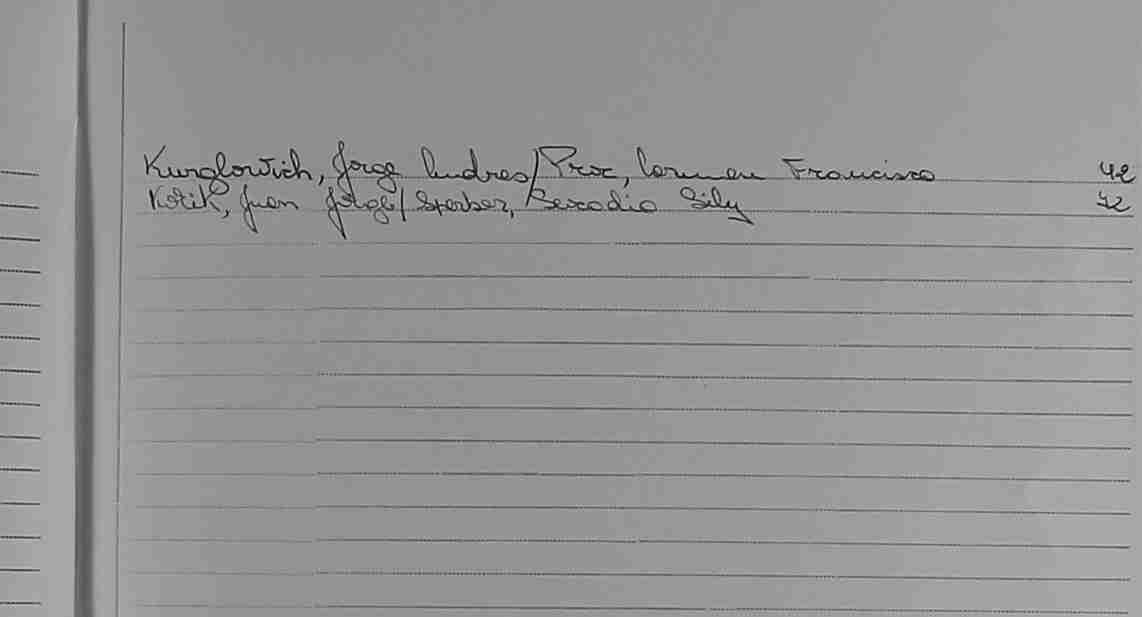 Kurglowich, Jorge Andres/Proc, Carmen Francisca 42
Kotik, Juan Jorge/Sperber, Lily 72